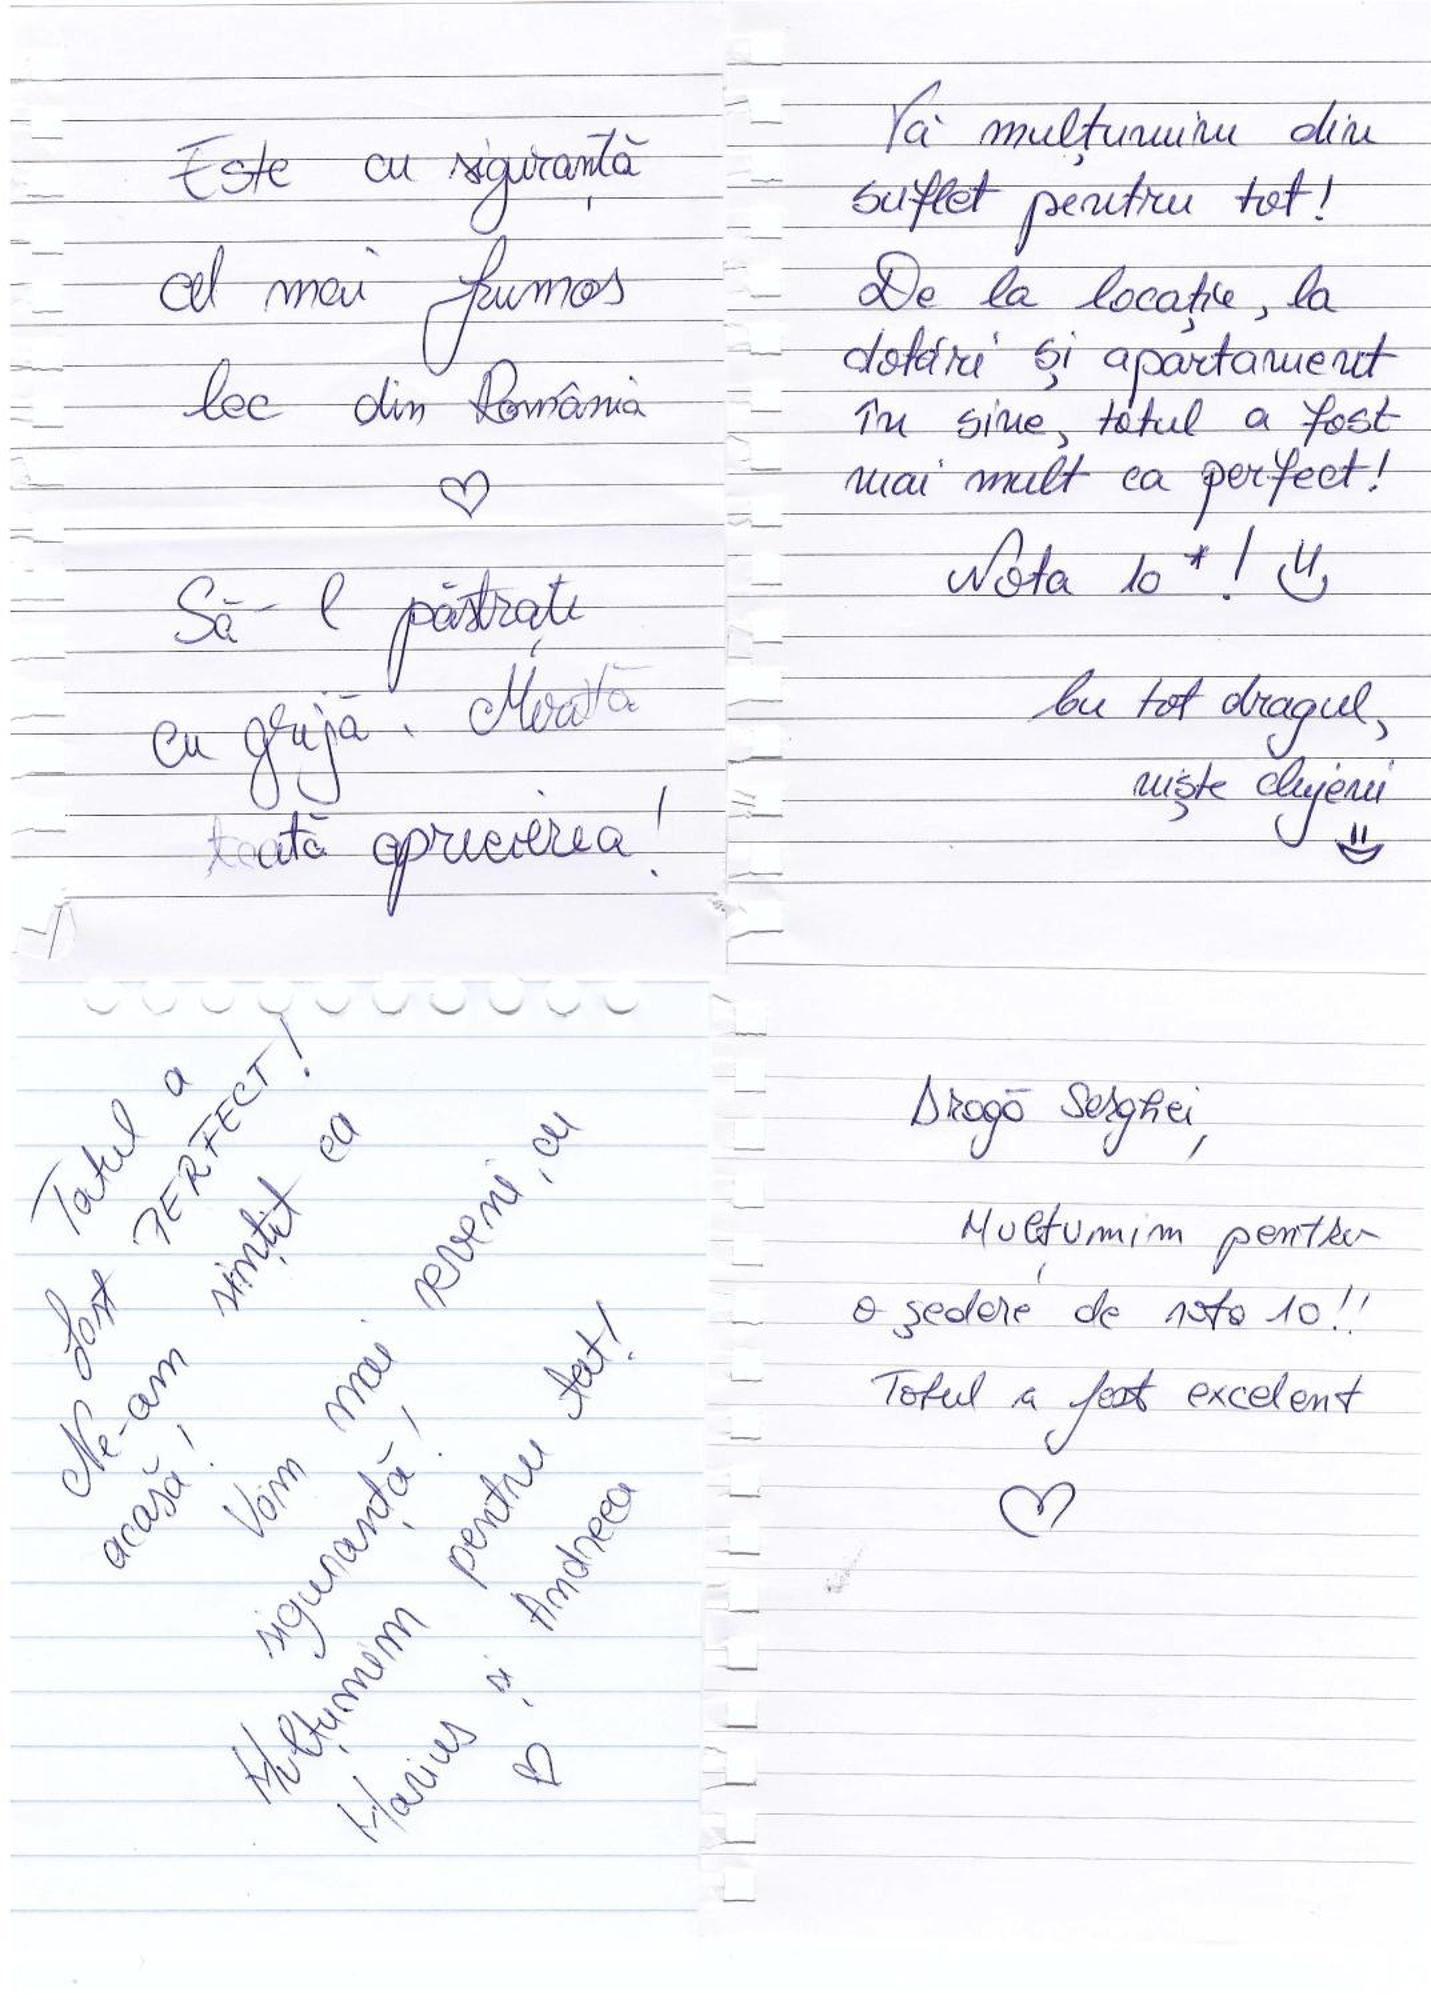 Este cu siguranță
cel mai frumos
loc din România
Să-l păstrați
cu grijă. Merită
toată aprecierea!
Vă mulțumim din
suflet pentru tot!
De la locație, la
dotări și apartament
în sine, totul a fost
mai mult ca perfect!
Nota 10*!
Cu tot dragul,
niște clujeni
Totul a
fost PERFECT!
Ne-am simțit ca
acasă!
Vom mai reveni, cu
siguranță!
Mulțumim pentru tot!
Marius și Andreea
Dragă Serghei,
Mulțumim pentru
o ședere de nota 10!!
Totul a fost excelent